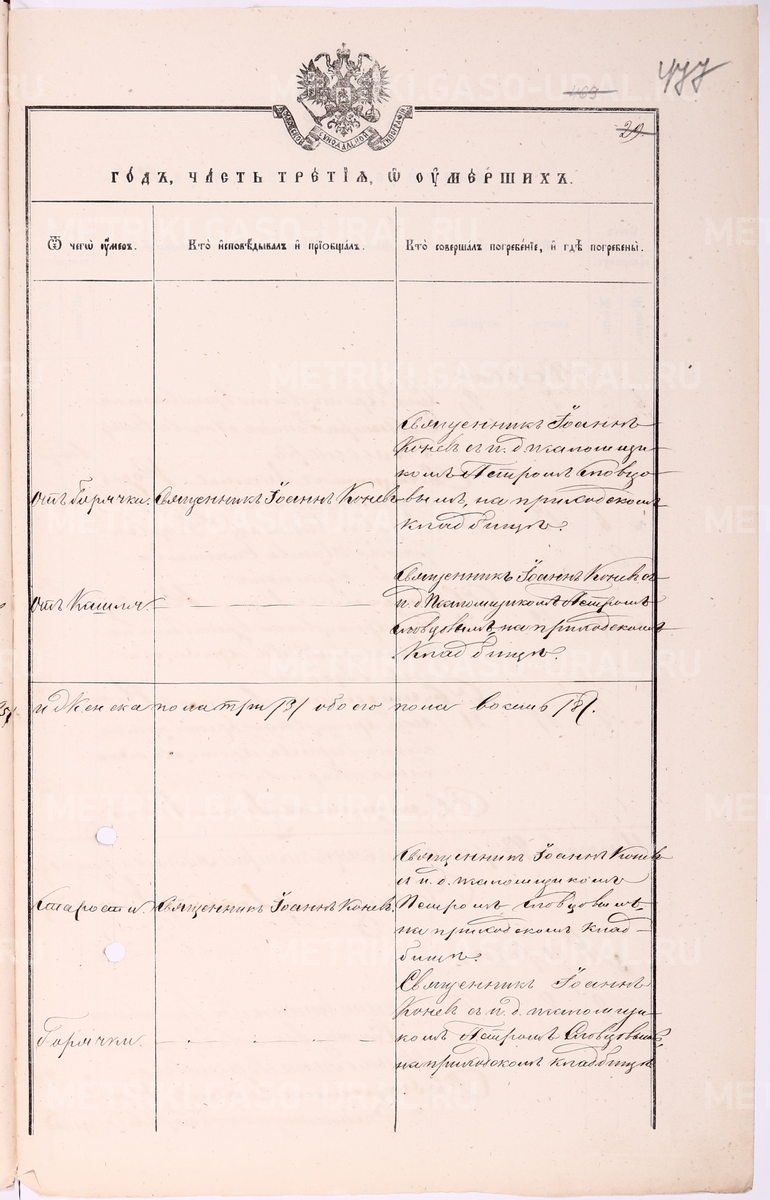 METRIKI.GASO-URAL.RU
477
469
29.
ГОДЪ, ЧАСТЬ ТРЕТІЯ, Ѿ ОУМЕРШИХЪ.
Ѿ чегѡ оумеръ.
Кто исповѣдывалъ и пріобщалъ.
Кто совершалъ погребеніе, и гдѣ погребены.
Отъ Горячки.
Священникъ Іоаннъ Коневъ
Священникъ Іоаннъ
Коневъ съ и. д. псаломщи-
комъ Петромъ Словцо-
вымъ, на приходскомъ
кладбищѣ.
Отъ Кашля
Священникъ Іоаннъ Коневъ съ
и. д. Псаломщикомъ Петромъ
Словцовымъ, на приходскомъ
Кладбищѣ.
и Женска пола три /3/ обоего пола восемь /8/.
Старости.
Священникъ Іоаннъ Коневъ.
Священникъ Іоаннъ Коневъ
съ и. д. псаломщикомъ
Петромъ Словцовымъ,
на приходскомъ клад-
бищѣ.
Горячки.
Священникъ Іоаннъ
Коневъ съ и. д. псаломщи-
комъ Петромъ Словцовымъ,
на приходскомъ кладбищѣ